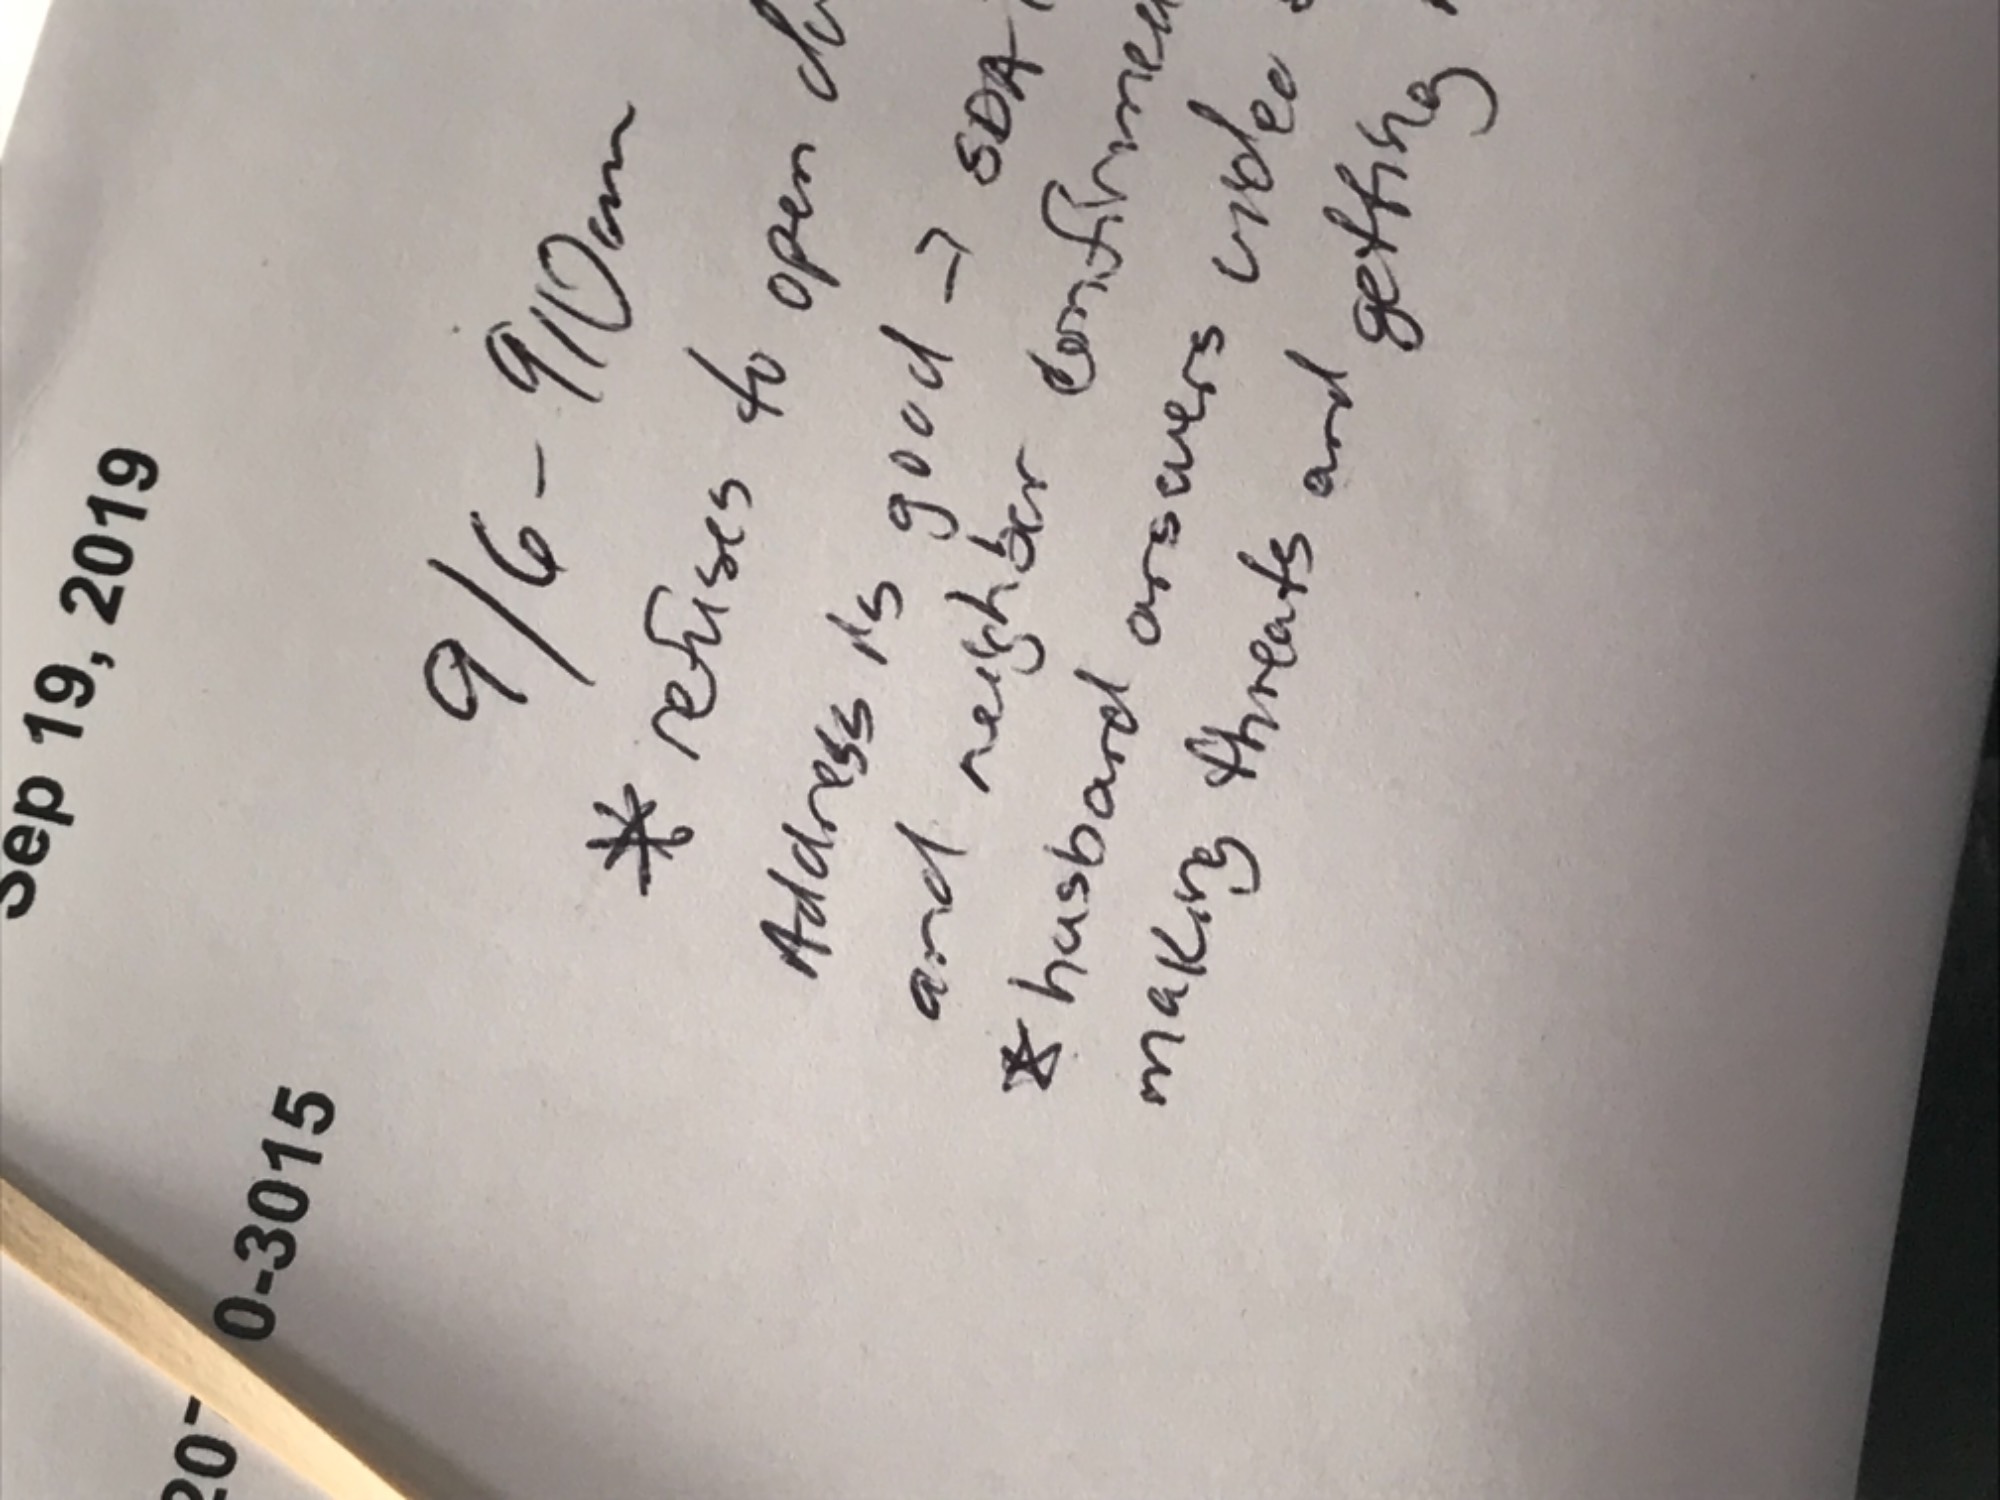 Sep 19, 2019
0-3015
20-
9/6 - 910am
* refuses to open
Address is good → SDA
and neighbor
* husband answers video
making threats and getting